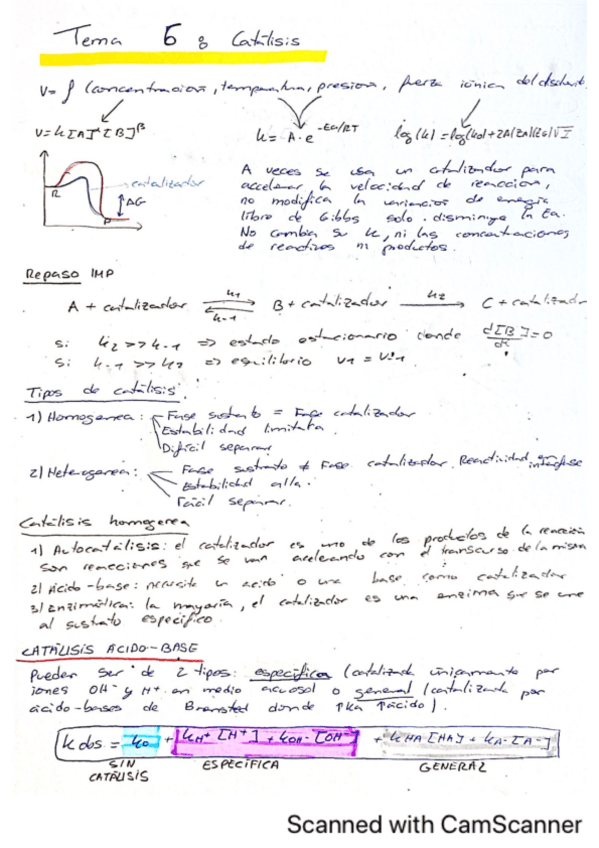 Tema 6 : Catálisis
v = f (concentración, temperatura, presión, fuerza iónica del disolvente)
v = k[A]^α [B]^β k = A · e^-Ea/RT log(k) = log(k0) + 2A|Za||Zb|√I
catalizador
R
ΔG
P
A veces se usa un catalizador para
acelerar la velocidad de reacción,
no modifica la variación de energía
libre de Gibbs solo disminuye la Ea.
No cambia su k, ni las concentraciones
de reactivos ni productos.
Repaso IMP
A + catalizador k1 k-1 B + catalizador k2 C + catalizador
Si k2 >> k-1 => estado estacionario donde d[B]/dt = 0
Si k-1 >> k2 => equilibrio v1 = v-1
Tipos de catálisis.
1) Homogenea: Fase sustrato = Fase catalizador
Estabilidad limitada
Difícil separar
2) Heterogenea: Fase sustrato ≠ Fase catalizador. Reactividad en interfase
Estabilidad alta.
Fácil separar.
Catálisis homogenea
1) Autocatálisis: el catalizador es uno de los productos de la reacción
son reacciones que se van acelerando con el transcurso de la misma
2) Ácido-base: necesita un ácido o una base como catalizador
3) Enzimática: la mayoría, el catalizador es una enzima que se une
al sustrato específico.
CATÁLISIS ÁCIDO-BASE
Pueden ser de 2 tipos: específica (catalizada únicamente por
iones OH- y H+ en medio acuoso) o general (catalizada por
ácido-bases de Bronsted donde ↑Ka ↑ácido).
k obs = k0 + kH+ [H+] + kOH- [OH-] + kHA [HA] + kA- [A-]
SIN CATÁLISIS ESPECÍFICA GENERAL
Scanned with CamScanner